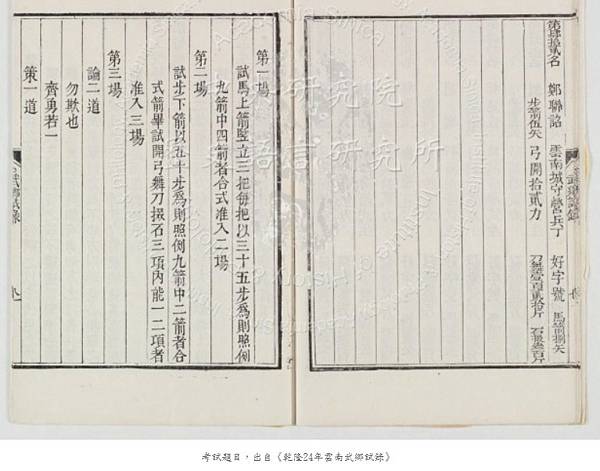 第肆拾貳名
鄭聯詔 雲南城守營兵丁 好字號 馬箭捌矢
步箭伍矢 弓開拾貳力 刀舞壹百貳拾斤 石掇叁百斤
武鄉試錄
第一場
試馬上箭豎立三把每把以三十五步為則照例
九箭中四箭者合式准入二場
第二場
試步下箭以五十步為則照例九箭中二箭者合
式箭畢試開弓舞刀掇石三項內能一二項者
准入三場
第三場
論二道
勿欺也
齊勇若一
策一道
武鄉試錄
考試題目,出自《乾隆24年雲南武鄉試錄》